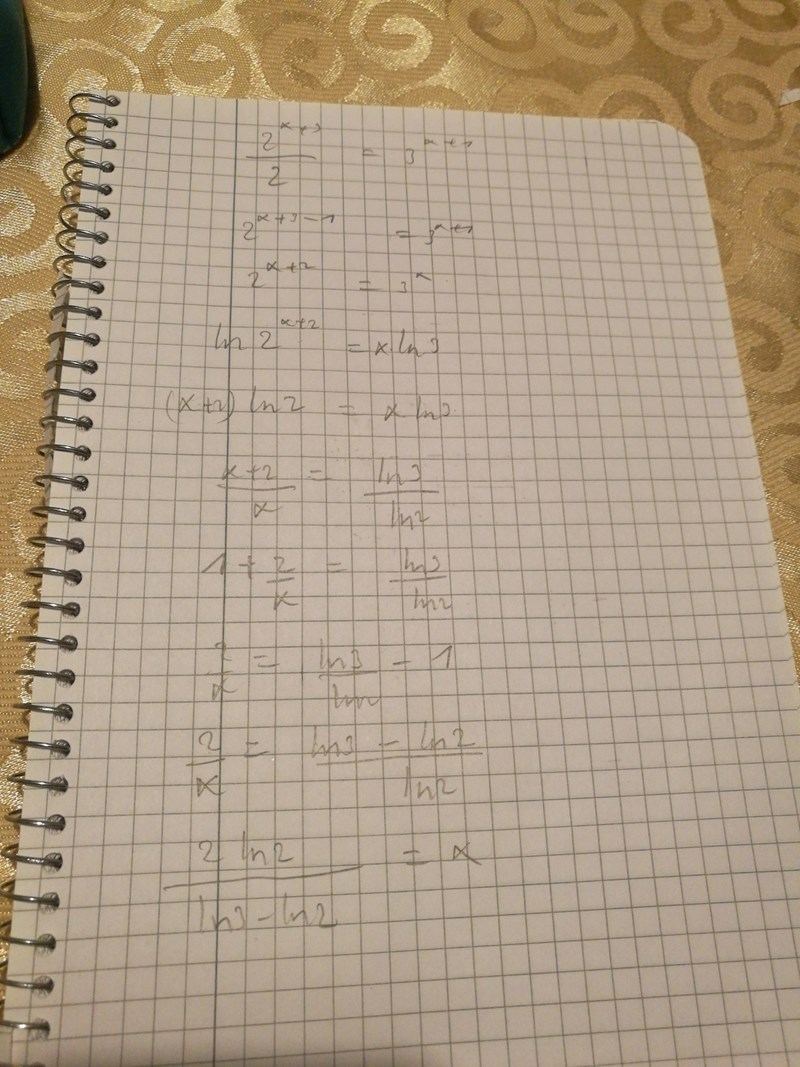 2^(x+3) / 2 = 3^(x+1)
2^(x+3-1) = 3^(x+1)
2^(x+2) = 3^x
ln 2^(x+2) = x ln3
(x+2) ln2 = x ln3
(x+2) / x = ln3 / ln2
1 + 2/x = ln3 / ln2
2/x = ln3 / ln2 - 1
2/x = (ln3 - ln2) / ln2
2 ln2 / (ln3 - ln2) = x